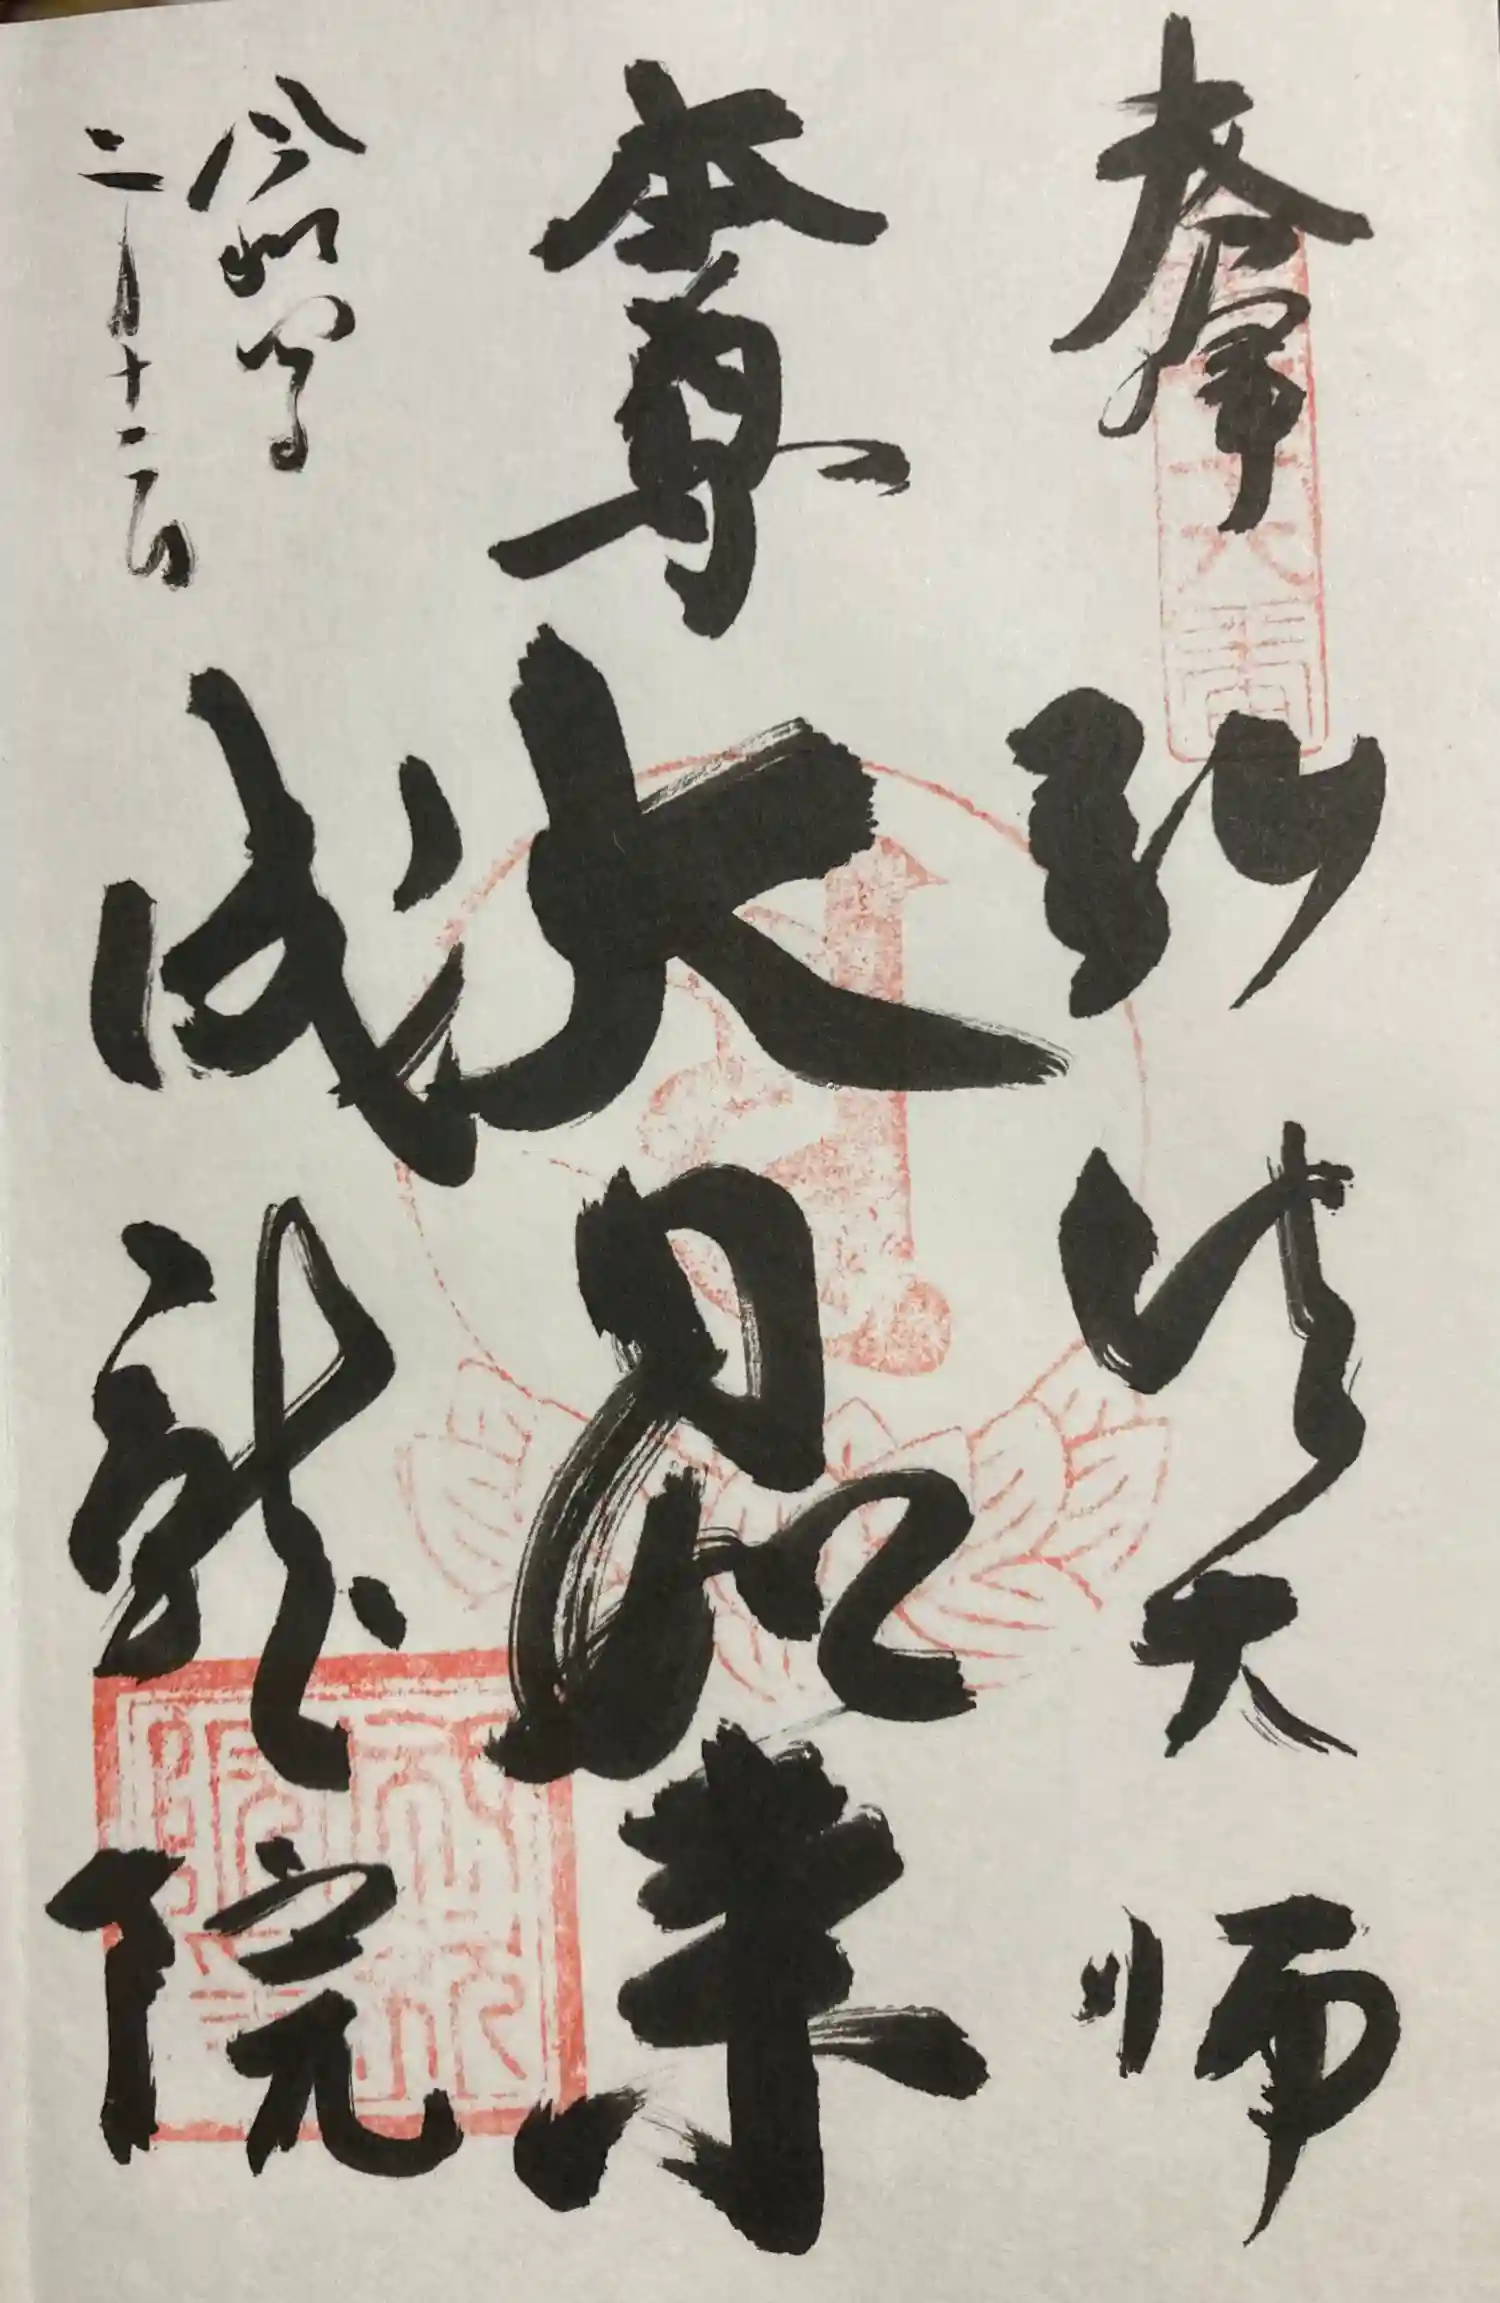 奉拝 弘法大師
本尊 大日如来
令和四年
二月十二日
成就院